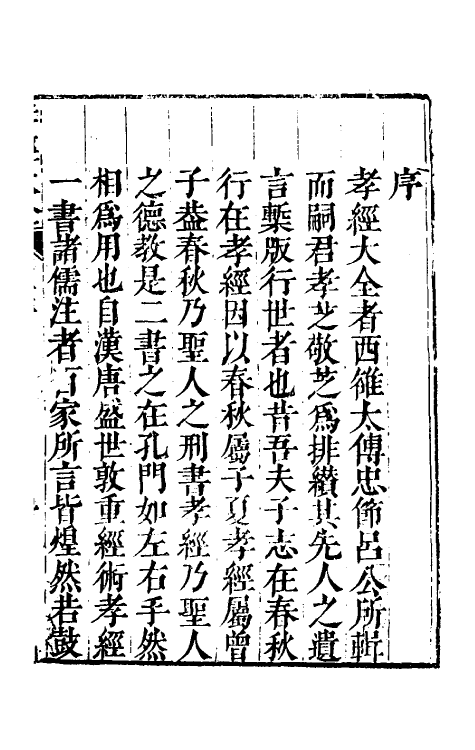 序
孝經大全者西雒太傅忠節呂公所輯
而嗣君孝芝敬芝為排纘其先人之遺
言槧版行世者也昔吾夫子志在春秋
行在孝經因以春秋屬子夏孝經屬曾
子葢春秋乃聖人之刑書孝經乃聖人
之德教是二書之在孔門如左右手然
相爲用也自漢唐盛世敦重經術孝經
一書諸儒注者百家所言皆煌然若鼓